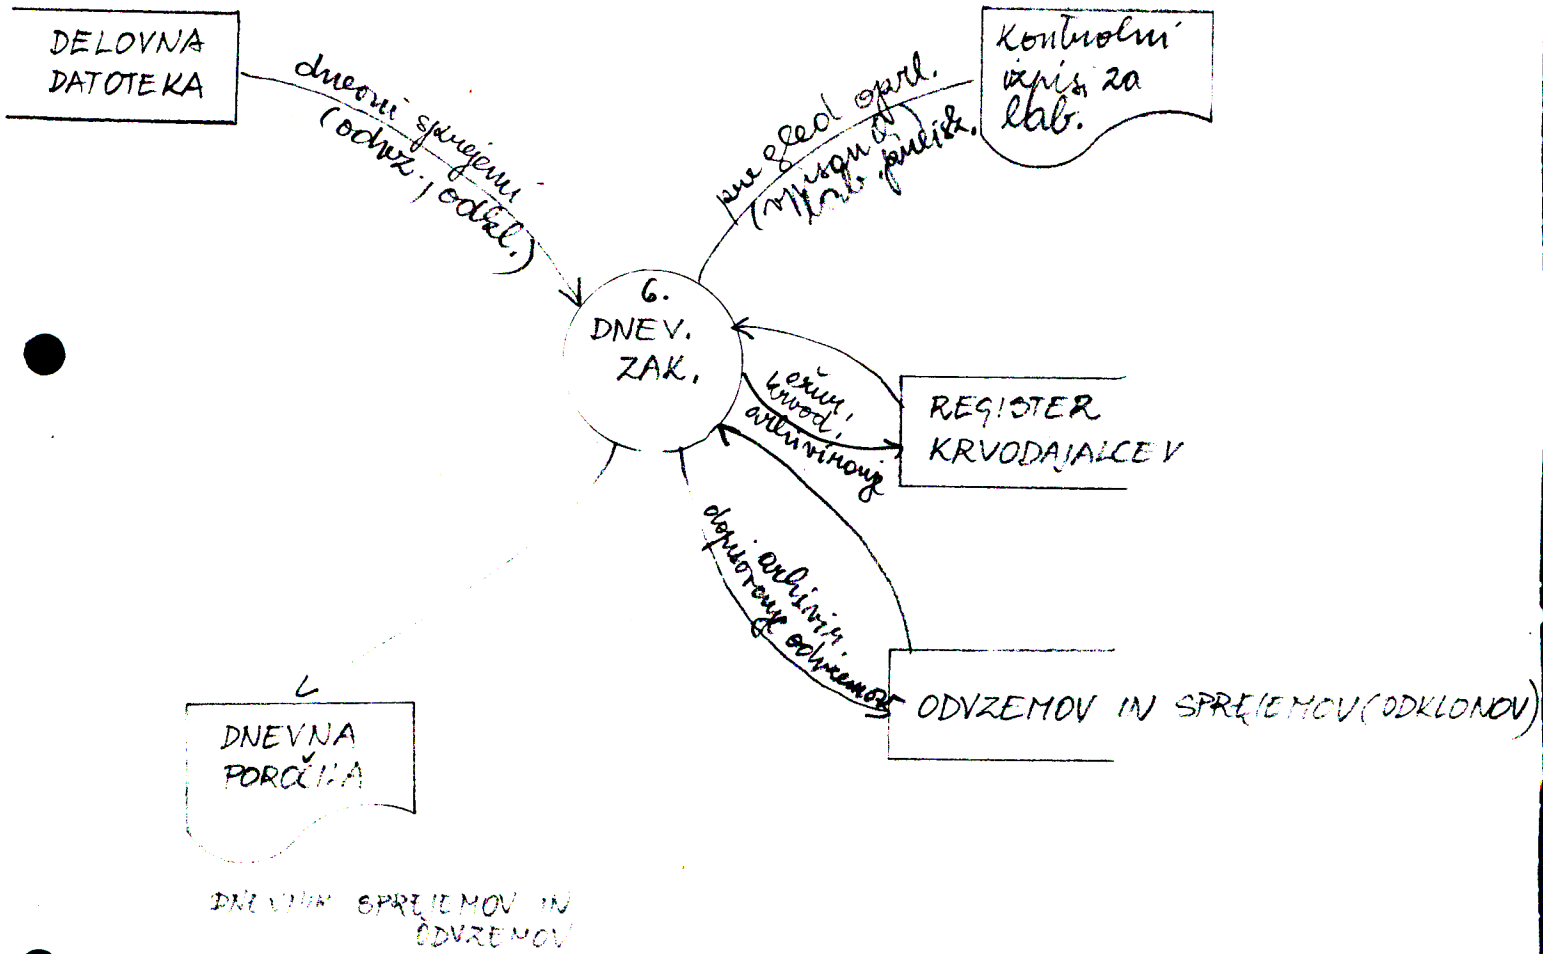 DELOVNA
DATOTEKA
dnevni sprejemi
(odvz., odkl.)
pregled oprl.
Kontrolni
izpisi za
lab.
6.
DNEV.
ZAK.
ažur.
krvod.
arhiviranje
REGISTER
KRVODAJALCEV
arhivir.
dopisovanje odvzemov
ODVZEMOV IN SPREJEMOV (ODKLONOV)
DNEVNA
POROČILA
DNEVNIK SPREJEMOV IN
ODVZEMOV